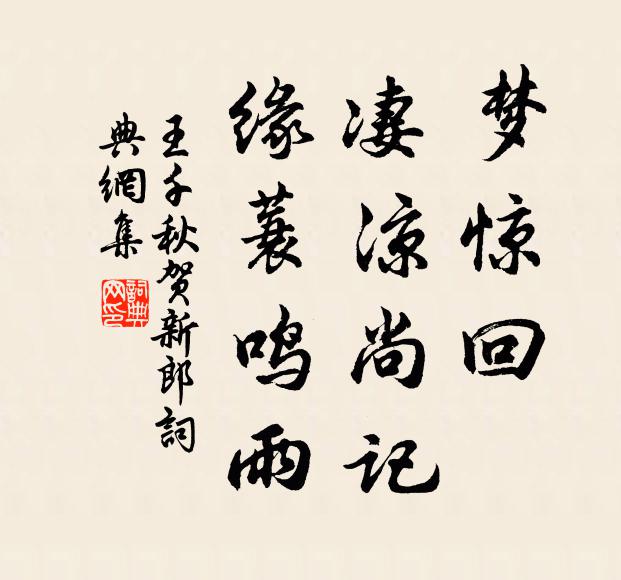 梦惊回
凄凉尚记
缘蓑鸣雨
王千秋贺新郎词
典網集
詞典
网印